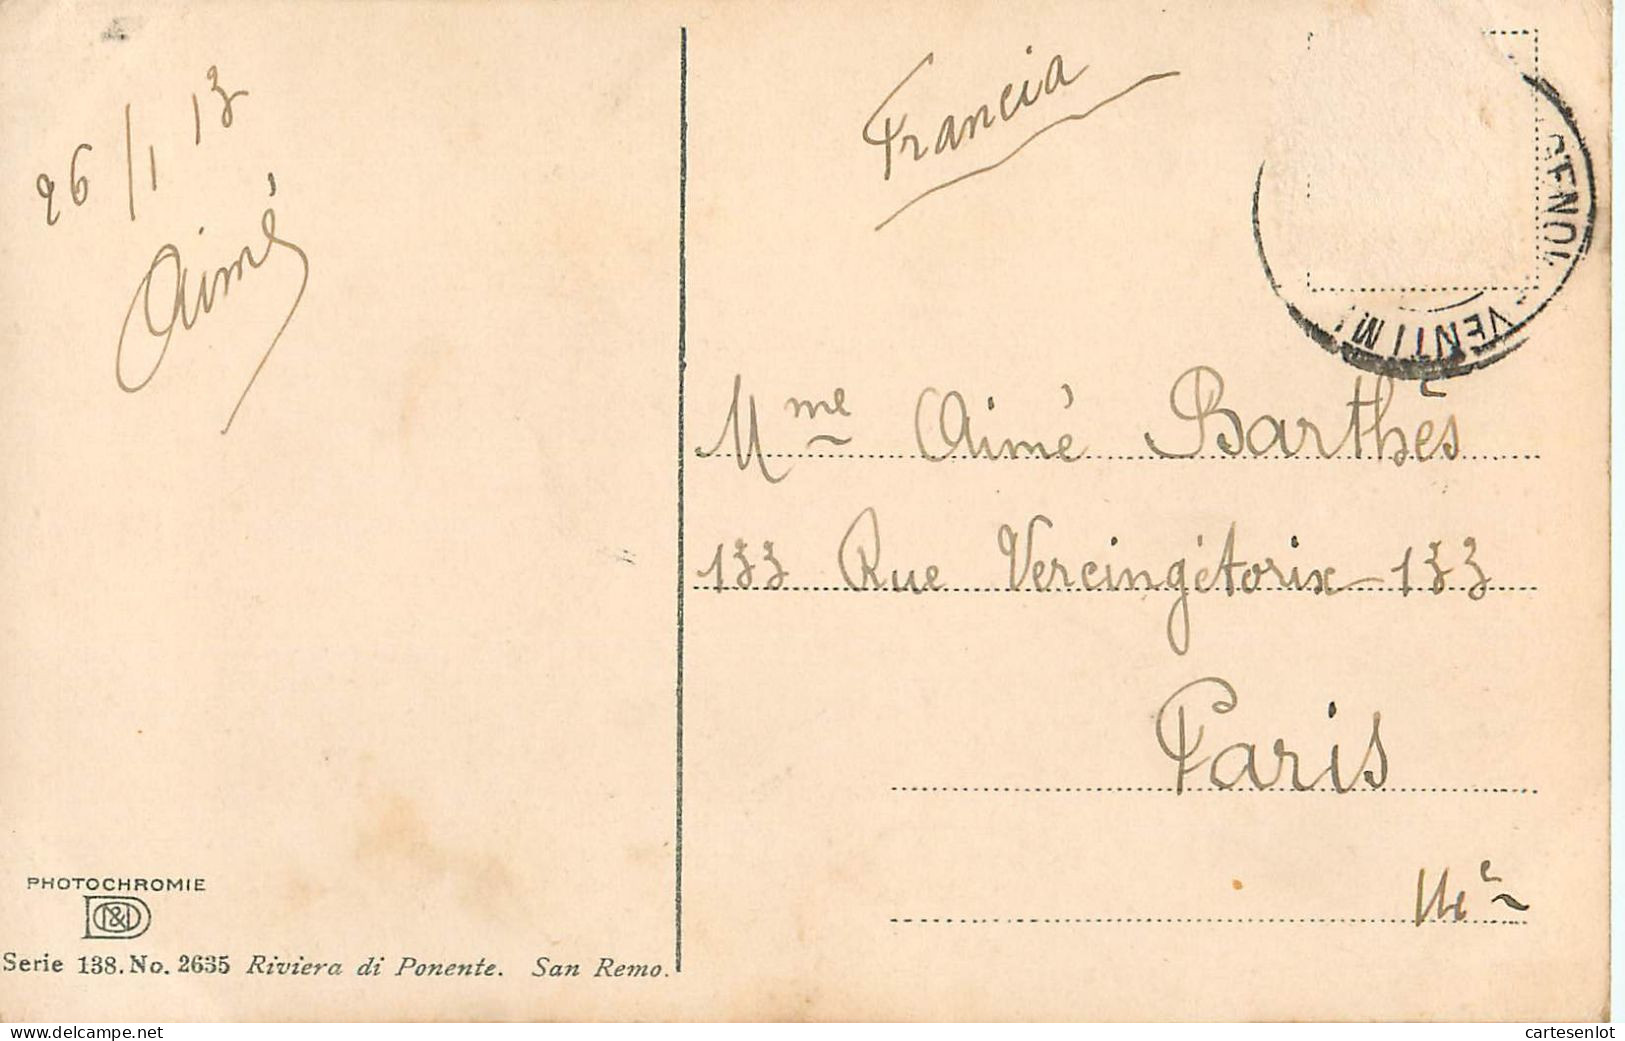 26/1 13
Aimé
Francia
Mme Aimé Barthès
133 Rue Vercingétorix - 133
Paris
14e
PHOTOCHROMIE
Serie 138. No. 2635 Riviera di Ponente. San Remo.
www.delcampe.net
cartesenlot